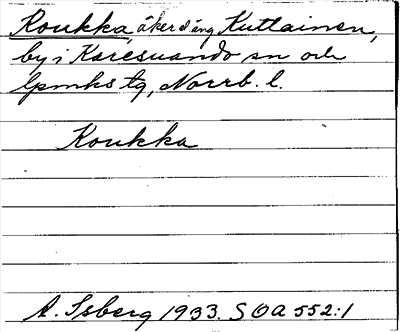 Koukka, åker o äng Kuttainen,
by i Karesuando sn och
lpmks tg, Norrb. l.
Koukka
A. Isberg 1933. SOA 552:1